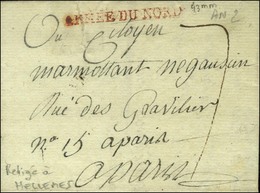 ARMÉE DU NORD
63mm
AN 2
Du Citoyen
marmottant negausien
Rue des Gravilier
n.º 15 a paris
a paris
Rédigé à
HELLEMES